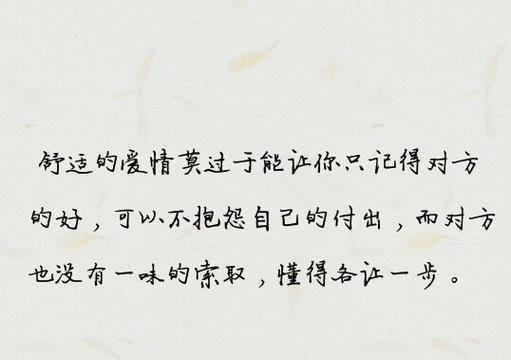 舒适的爱情莫过于能让你只记得对方
的好，可以不抱怨自己的付出，而对方
也没有一味的索取，懂得各让一步。